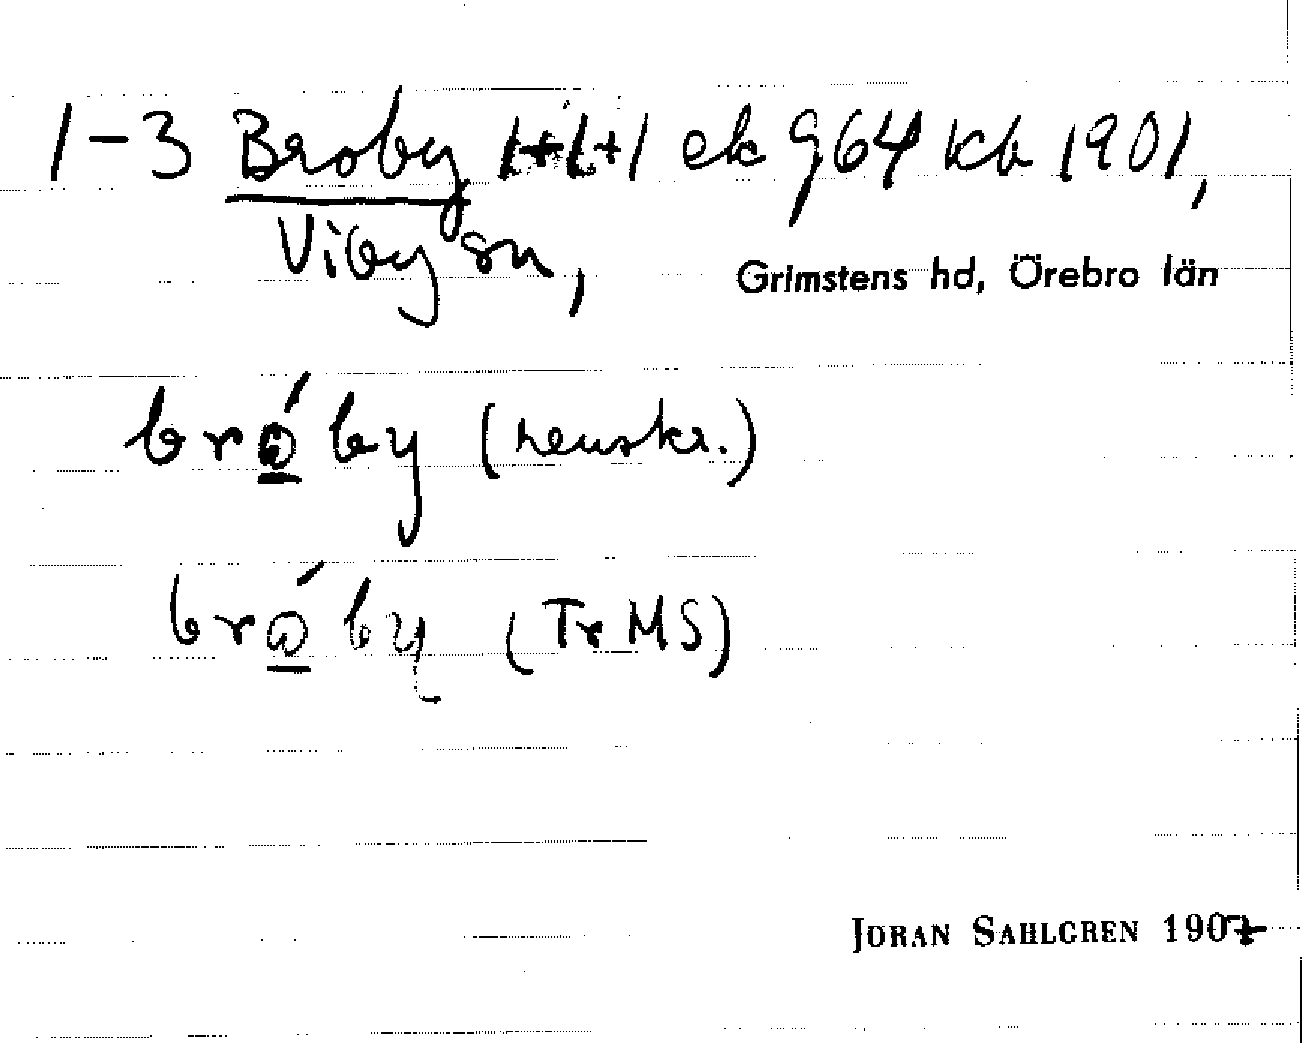 1-3 Broby 1+1+1 ek 964 kb 1901,
Viby sn,
Grimstens hd, Örebro län
brώ̲by (renskr.)
brώ̲by (Tr MS)
JÖRAN SAHLGREN 1907